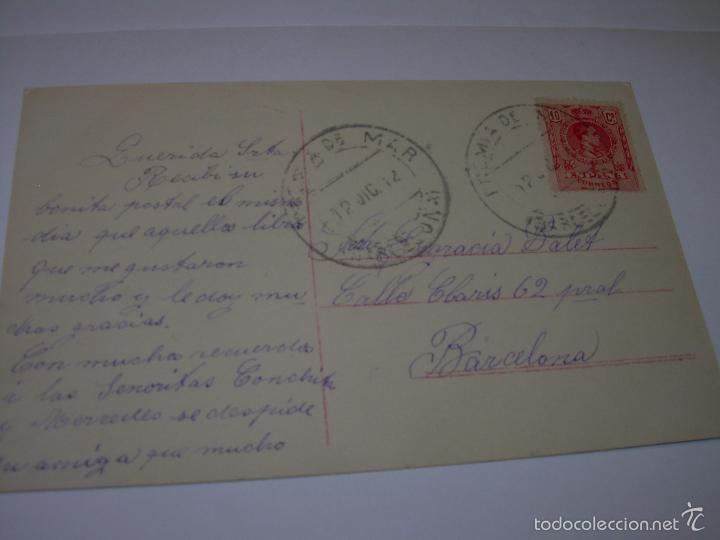 Querida Srta
Recibi su
bonita postal el mismo
dia que aquellos libros
que me gustaron
mucho y le doy mu
chas gracias.
Con mucha recuerda
á las Señoritas Conchita
y Mercedes se despide
su amiga que mucho
DE MAR
12 DIC 12
PREMIA DE
12
10 Cs
CORREOS
Salet
Calle Claris 62 pral
Barcelona
todocoleccion.net